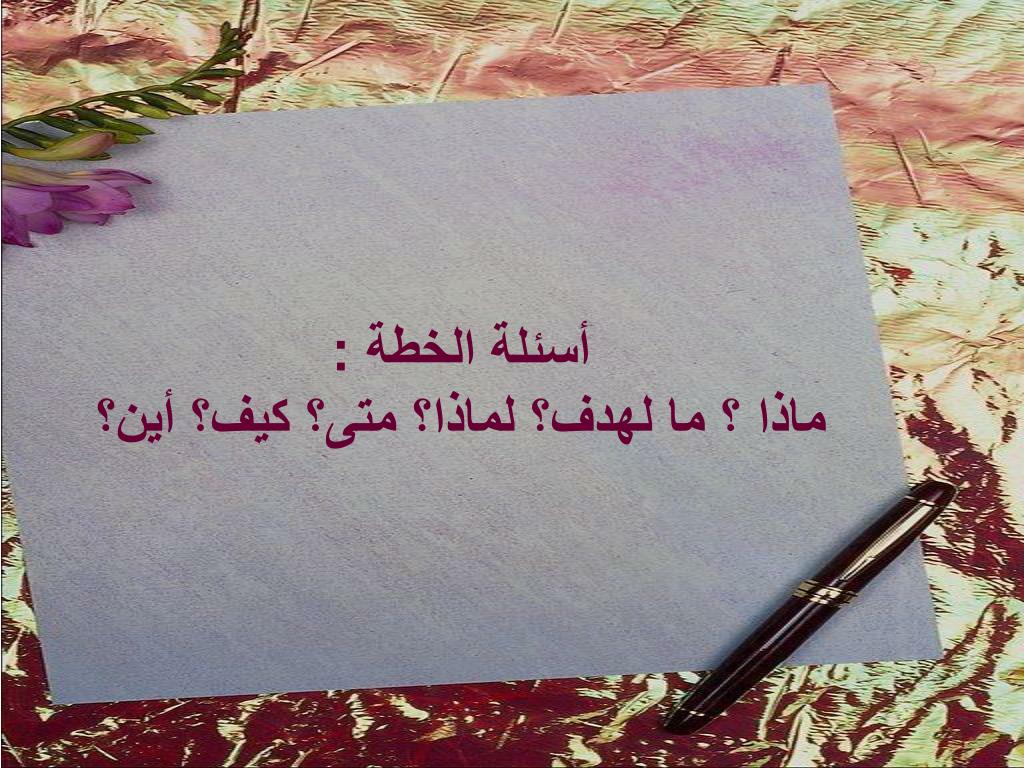 أسئلة الخطة :
ماذا ؟ ما لهدف؟ لماذا؟ متى؟ كيف؟ أين؟